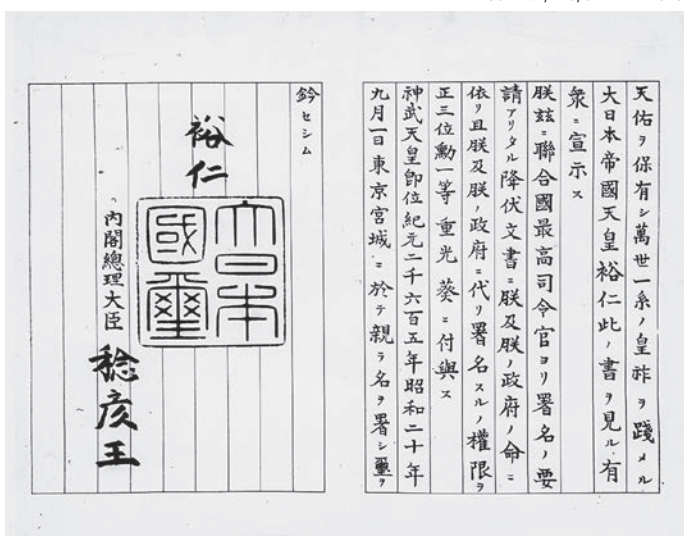 天佑ヲ保有シ萬世一系ノ皇祚ヲ踐メル
大日本帝國天皇裕仁此ノ書ヲ見ル有
衆ニ宣示ス
朕茲ニ聯合國最高司令官ヨリ署名ノ要
請アリタル降伏文書ニ朕及朕ノ政府ノ命ニ
依リ且朕及朕ノ政府ニ代リ署名スルノ權限ヲ
正三位勳一等重光葵ニ付與ス
神武天皇卽位紀元二千六百五年昭和二十年
九月一日東京宮城ニ於テ親ラ名ヲ署シ璽ヲ
鈐セシム
裕仁
大日本
國璽
內閣總理大臣
稔彥王